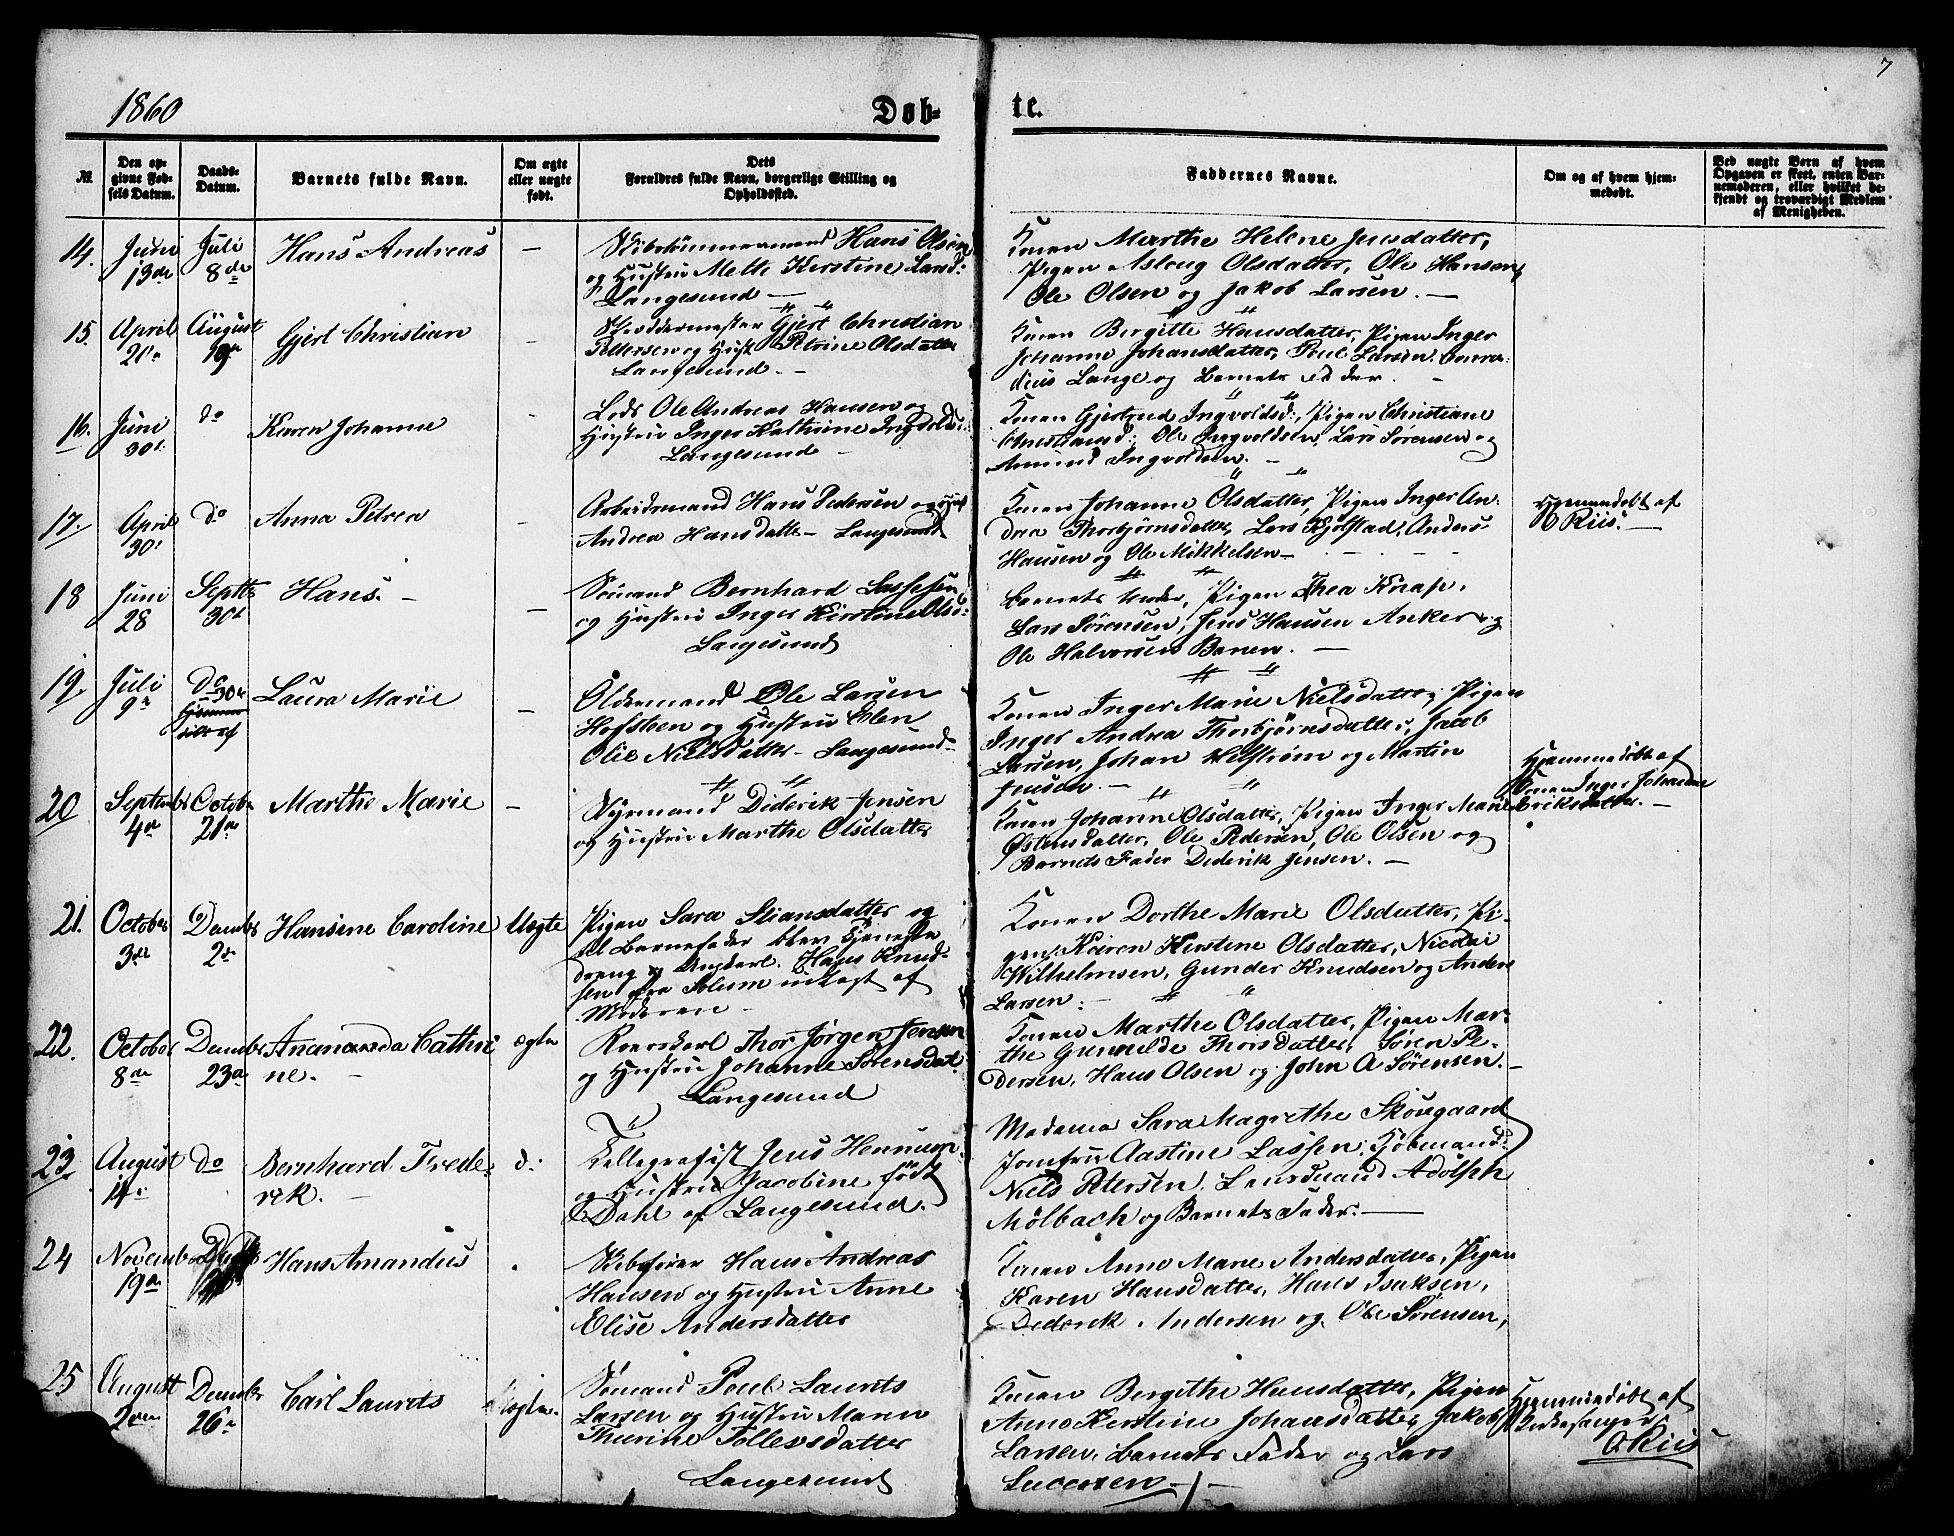 7
1860
Døb-
te.
№.
Den op-
givne Fød-
sels Datum.
Daabs-
Datum.
Barnets fulde Navn.
Om ægte
eller uægte
født.
Dets
Forældres fulde Navn, borgerlige Stilling og
Opholdssted.
Faddernes Navne.
Om og af hvem hjem-
medøbt.
Ved uægte Børn af hvem
Opgaven er skeet, enten Bar-
nemoderen, eller hvilket be-
kjendt og troværdigt Medlem
af Menigheden.
14. Juni 13de
Juli 8de
Hans Andreas
—
Skibstømmermand Hans Olsen
og Hustru Mette Kirstine Larsd:
Langesund —
Konen Marthe Helene Jensdatter,
Pigen Asloug Olsdatter, Ole Hansen,
Ole Olsen og Jakob Larsen. —
15. April
August 19de
Gjert Christian
—
Gjert Christian
Pettersen og Hust. Petrine Olsdatter
Langesund. —
Konen Birgitte Hansdatter, Pigen Inger
Johanne Johansdatter, Poul Larsen,
Lange og Barnets Fader. —
16. Juni 30t
do
Karen Johanne
—
Lods Ole Andreas Hansen og
Hustru Inger Kathrine Ingvoldsd:
Langesund —
Konen Gjertrud Ingvoldsd:, Pigen Christiane
Christiansd:, Ole Ingvoldsen, Lars Sørensen og
Amund Ingvoldsen. —
17. April 30t
do
Anna Petrea
—
Arbeidsmand Hans Pedersen og Hust
Andrea Hansdatter — Langesund
Konen Johanne Olsdatter, Pigen Inger An-
drea Thorbjørnsdatter, Lars Kjølstad, Anders
Hansen og Ole Mikkelsen —
Hjemmedøbt af
O Riis. —
18 Juni 28
Septbr 30t
Hans. —
—
Sømand Bernhard Lassesen
og Hustru Inger Kirstine Olsd:
Langesund
Barnets Moder, Pigen Thea Knap,
Lars Sørensen, Jens Hansen Anker og
Ole Halvorsen Banen. —
19. Juli 9de
do 30te
Laura Marie
—
Oldermand Ole Larsen
Hofsteen og Hustru Elen
Olie Nielsdatter — Langesund —
Konen Inger Marie Nielsdatter, Pigen
Inger Andrea Thorbjørnsdatter, Jacob
Larsen, Johan Helstrøm og Martin
Jensen. —
20 Septmbr 4de
Octobr 21de
Marthe Marie
—
Styrmand Diderik Jensen
og Hustru Marthe Olsdatter
Konen Johanne Olsdatter, Pigen Inger Marie
Østensdatter, Ole Pedersen, Ole Olsen og
Barnets Fader Diderik Jensen. —
Hjemmedøbt af
Konen Inger Johanne
Eriksdatter. —
21. October 3de
Decmbr 2de
Hansine Caroline
Uægte
Pigen Sara Stiansdatter og
til Barnefader blev Tjeneste
dreng og Ungkarl Hans Knud-
sen fra Solum udlagt af
Moderen —
Konen Dorthe Marie Olsdatter, Pi-
gen Karen Kirstine Olsdatter, Nicolai
Wilhelmsen, Gunder Knudsen og Anders
Larsen. —
22. October 8de
Decmber 23de
Amanda Cathri
ne. —
ægte
Roerskarl Thor Jørgen Jensen
og Hustru Johanne Sørensdat:
Langesund
Konen Marthe Olsdatter, Pigen Mar-
the Gunnilde Thorsdatter, Søren Pe-
dersen, Hans Olsen og John A Sørensen. —
23. August 14de
do
Bernhard Frede-
rik. —
d:
Tellegrafist Jens Hennum
og Hustru Jacobine født
Dahl af Langesund. —
Madame Sara Magrethe Skougaard
Jomfru Aastine Lassen, Kjøbmand
Niels Petersen, Adolph
Mölbach og Barnets Fader. —
24 November 19de
Hans Amandus
.
Skibsfører Hans Andreas
Hansen og Hustru Anne
Elise Andersdatter
Konen Anne Marie Andersdatter, Pigen
Karen Hansdatter, Hans Isaksen,
Diderik Andersen og Ole Sørensen,
25 August
Decmber 26de
Carl Laurits
ægte.
Sømand Poul Laurits
Larsen og Hustru Maren
Thurine Tollefsdatter
Langesund
Konen Bergithe Hansdatter, Pigen
Anne Kirstine Johansdatter, Jakob
Larsen, Barnets Fader og Lars
Hjemmedøbt af
Kirkesanger
O Riis